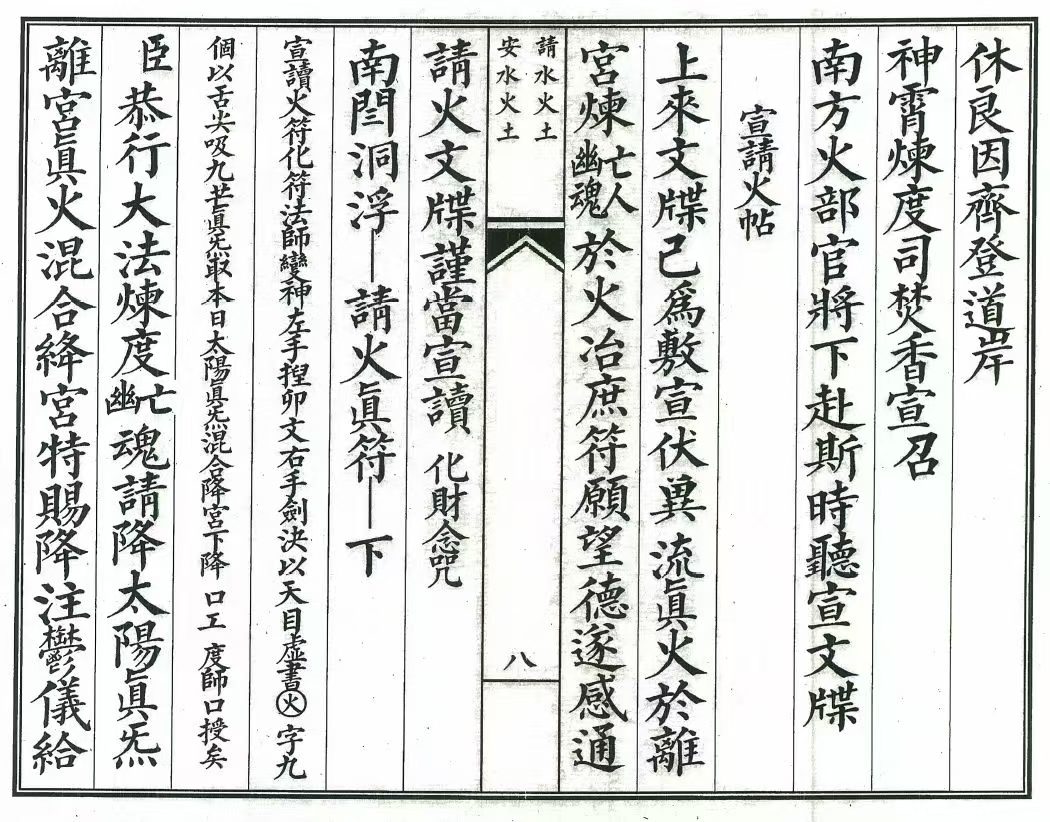 休良因齊登道岸
神霄煉度司焚香宣召
南方火部官將下赴斯時聽宣文牒
宣請火帖
上來文牒己爲敷宣伏兾流眞火於離
宮煉亡人幽魂於火冶庶符願望德遂感通
請水火土
安水火土
八
請火文牒謹當宣讀 化財念咒
南閆洞浮—請火眞符—下
宣讀火符化符法師變神左手揑卯文右手劍決以天目虛書㊋字九
個以舌尖吸九芒眞炁取本日太陽眞炁混合降宮下降 口工 度師口授矣
臣恭行大法煉度亡幽魂請降太陽眞炁
離宮眞火混合絳宮特賜降注鬱儀給